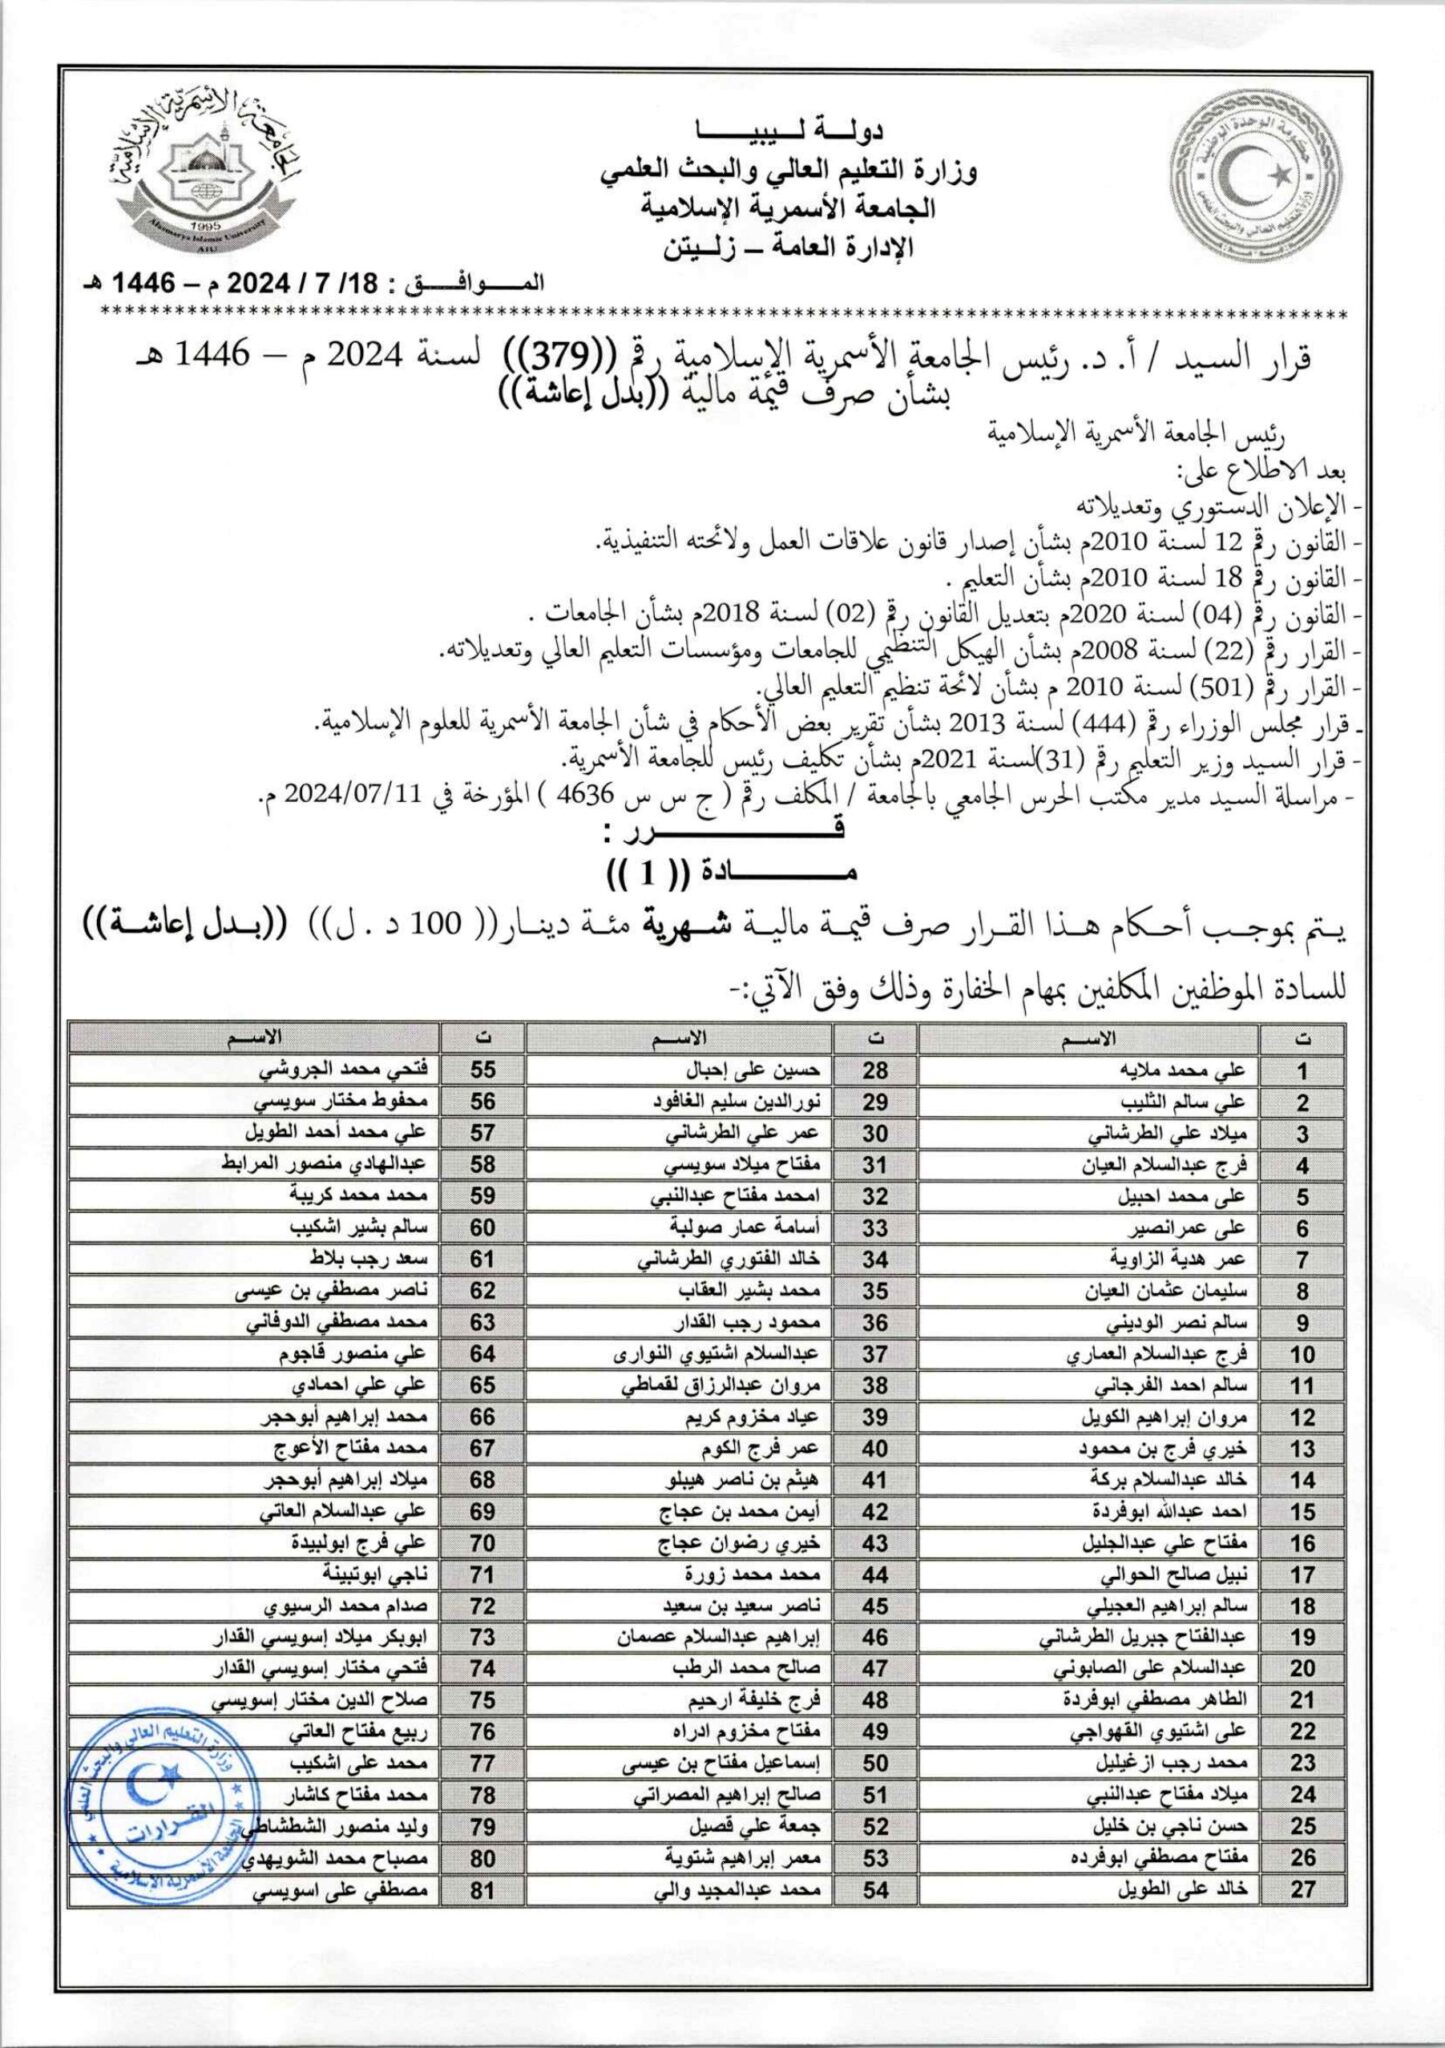 الجامعة الأسمرية الإسلامية
1995
Alasmarya Islamic University
AIU
حكومة الوحدة الوطنية
وزارة التعليم العالي والبحث العلمي
دولـة لـيبيـــا
وزارة التعليم العالي والبحث العلمي
الجامعة الأسمرية الإسلامية
الإدارة العامة – زلـيتن
المــوافــق : 18/ 7 / 2024 م – 1446 هـ
قرار السيد / أ. د. رئيس الجامعة الأسمرية الإسلامية رقم ((379)) لسنة 2024 م – 1446 هـ
بشأن صرف قيمة مالية ((بدل إعاشة))
رئيس الجامعة الأسمرية الإسلامية
بعد الاطلاع على:
- الإعلان الدستوري وتعديلاته
- القانون رقم 12 لسنة 2010م بشأن إصدار قانون علاقات العمل ولائحته التنفيذية.
- القانون رقم 18 لسنة 2010م بشأن التعليم .
- القانون رقم (04) لسنة 2020م بتعديل القانون رقم (02) لسنة 2018م بشأن الجامعات .
- القرار رقم (22) لسنة 2008م بشأن الهيكل التنظيمي للجامعات ومؤسسات التعليم العالي وتعديلاته.
- القرار رقم (501) لسنة 2010 م بشأن لائحة تنظيم التعليم العالي.
- قرار مجلس الوزراء رقم (444) لسنة 2013 بشأن تقرير بعض الأحكام في شأن الجامعة الأسمرية للعلوم الإسلامية.
- قرار السيد وزير التعليم رقم (31)لسنة 2021م بشأن تكليف رئيس للجامعة الأسمرية.
- مراسلة السيد مدير مكتب الحرس الجامعي بالجامعة / المكلف رقم ( ج س س 4636 ) المؤرخة في 2024/07/11 م.
قـــــــــرر :
مـــــــادة (( 1 ))
يـتم بموجـب أحـكام هـذا القـرار صرف قيمـة ماليـة شـهرية مئـة دينـار(( 100 د . ل)) ((بـدل إعاشـة))
للسادة الموظفين المكلفين بمهام الخفارة وذلك وفق الآتي:-
ت الاســم ت الاســم ت الاســم
1 علي محمد ملايه 28 حسين على إحبال 55 فتحي محمد الجروشي
2 علي سالم الثليب 29 نورالدين سليم الغافود 56 محفوط مختار سويسي
3 ميلاد علي الطرشاني 30 عمر علي الطرشاني 57 علي محمد أحمد الطويل
4 فرج عبدالسلام العيان 31 مفتاح ميلاد سويسي 58 عبدالهادي منصور المرابط
5 على محمد احبيل 32 امحمد مفتاح عبدالنبي 59 محمد محمد كريبة
6 على عمرانصير 33 أسامة عمار صولبة 60 سالم بشير اشكيب
7 عمر هدية الزاوية 34 خالد الفتوري الطرشاني 61 سعد رجب بلاط
8 سليمان عثمان العيان 35 محمد بشير العقاب 62 ناصر مصطفي بن عيسى
9 سالم نصر الوديني 36 محمود رجب القدار 63 محمد مصطفي الدوفاني
10 فرج عبدالسلام العماري 37 عبدالسلام اشتيوي النوارى 64 علي منصور قاجوم
11 سالم احمد الفرجاني 38 مروان عبدالرزاق لقماطي 65 علي علي احمادي
12 مروان إبراهيم الكويل 39 عياد مخزوم كريم 66 محمد إبراهيم أبوحجر
13 خيري فرج بن محمود 40 عمر فرج الكوم 67 محمد مفتاح الأعوج
14 خالد عبدالسلام بركة 41 هيثم بن ناصر هيبلو 68 ميلاد إبراهيم أبوحجر
15 احمد عبدالله ابوفردة 42 أيمن محمد بن عجاج 69 علي عبدالسلام العاتي
16 مفتاح علي عبدالجليل 43 خيري رضوان عجاج 70 علي فرج ابولبيدة
17 نبيل صالح الحوالي 44 محمد محمد زورة 71 ناجي ابوتبينة
18 سالم إبراهيم العجيلي 45 ناصر سعيد بن سعيد 72 صدام محمد الرسيوي
19 عبدالفتاح جبريل الطرشاني 46 إبراهيم عبدالسلام عصمان 73 ابوبكر ميلاد إسويسي القدار
20 عبدالسلام على الصابوني 47 صالح محمد الرطب 74 فتحي مختار إسويسي القدار
21 الطاهر مصطفي ابوفردة 48 فرج خليفة ارحيم 75 صلاح الدين مختار إسويسي
22 على اشتيوي القهواجي 49 مفتاح مخزوم ادراه 76 ربيع مفتاح العاتي
23 محمد رجب ازغيليل 50 إسماعيل مفتاح بن عيسى 77 محمد على اشكيب
24 ميلاد مفتاح عبدالنبي 51 صالح إبراهيم المصراتي 78 محمد مفتاح كاشار
25 حسن ناجي بن خليل 52 جمعة علي قصيل 79 وليد منصور الشطشاطي
26 مفتاح مصطفي ابوفرده 53 معمر إبراهيم شتوية 80 مصباح محمد الشويهدي
27 خالد على الطويل 54 محمد عبدالمجيد والي 81 مصطفي على اسويسي
وزارة التعليم العالي والبحث العلمي
القرارات
الجامعة الأسمرية الإسلامية